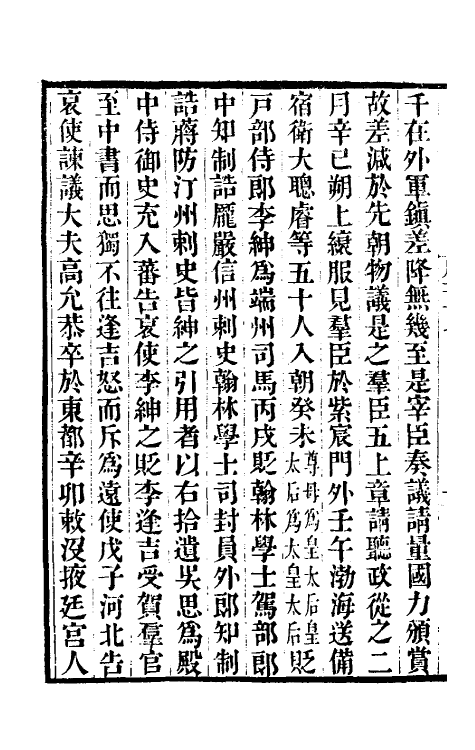 千在外軍鎮差降無幾至是宰臣奏議請量國力頒賞
故差減於先朝物議是之羣臣五上章請聽政從之二
月辛巳朔上縗服見羣臣於紫宸門外壬午渤海送備
宿衛大聰睿等五十人入朝癸未尊母爲皇太后皇太后爲太皇太后貶
戸部侍郎李紳爲端州司馬丙戌貶翰林學士駕部郎
中知制誥龐嚴信州刺史翰林學士司封員外郎知制
誥蔣防汀州刺史皆紳之引用者以右拾遺吳思爲殿
中侍御史充入蕃告哀使李紳之貶李逢吉受賀羣官
至中書而思獨不往逢吉怒而斥爲遠使戊子河北告
哀使諫議大夫高允恭卒於東都辛卯敕沒掖廷宮人